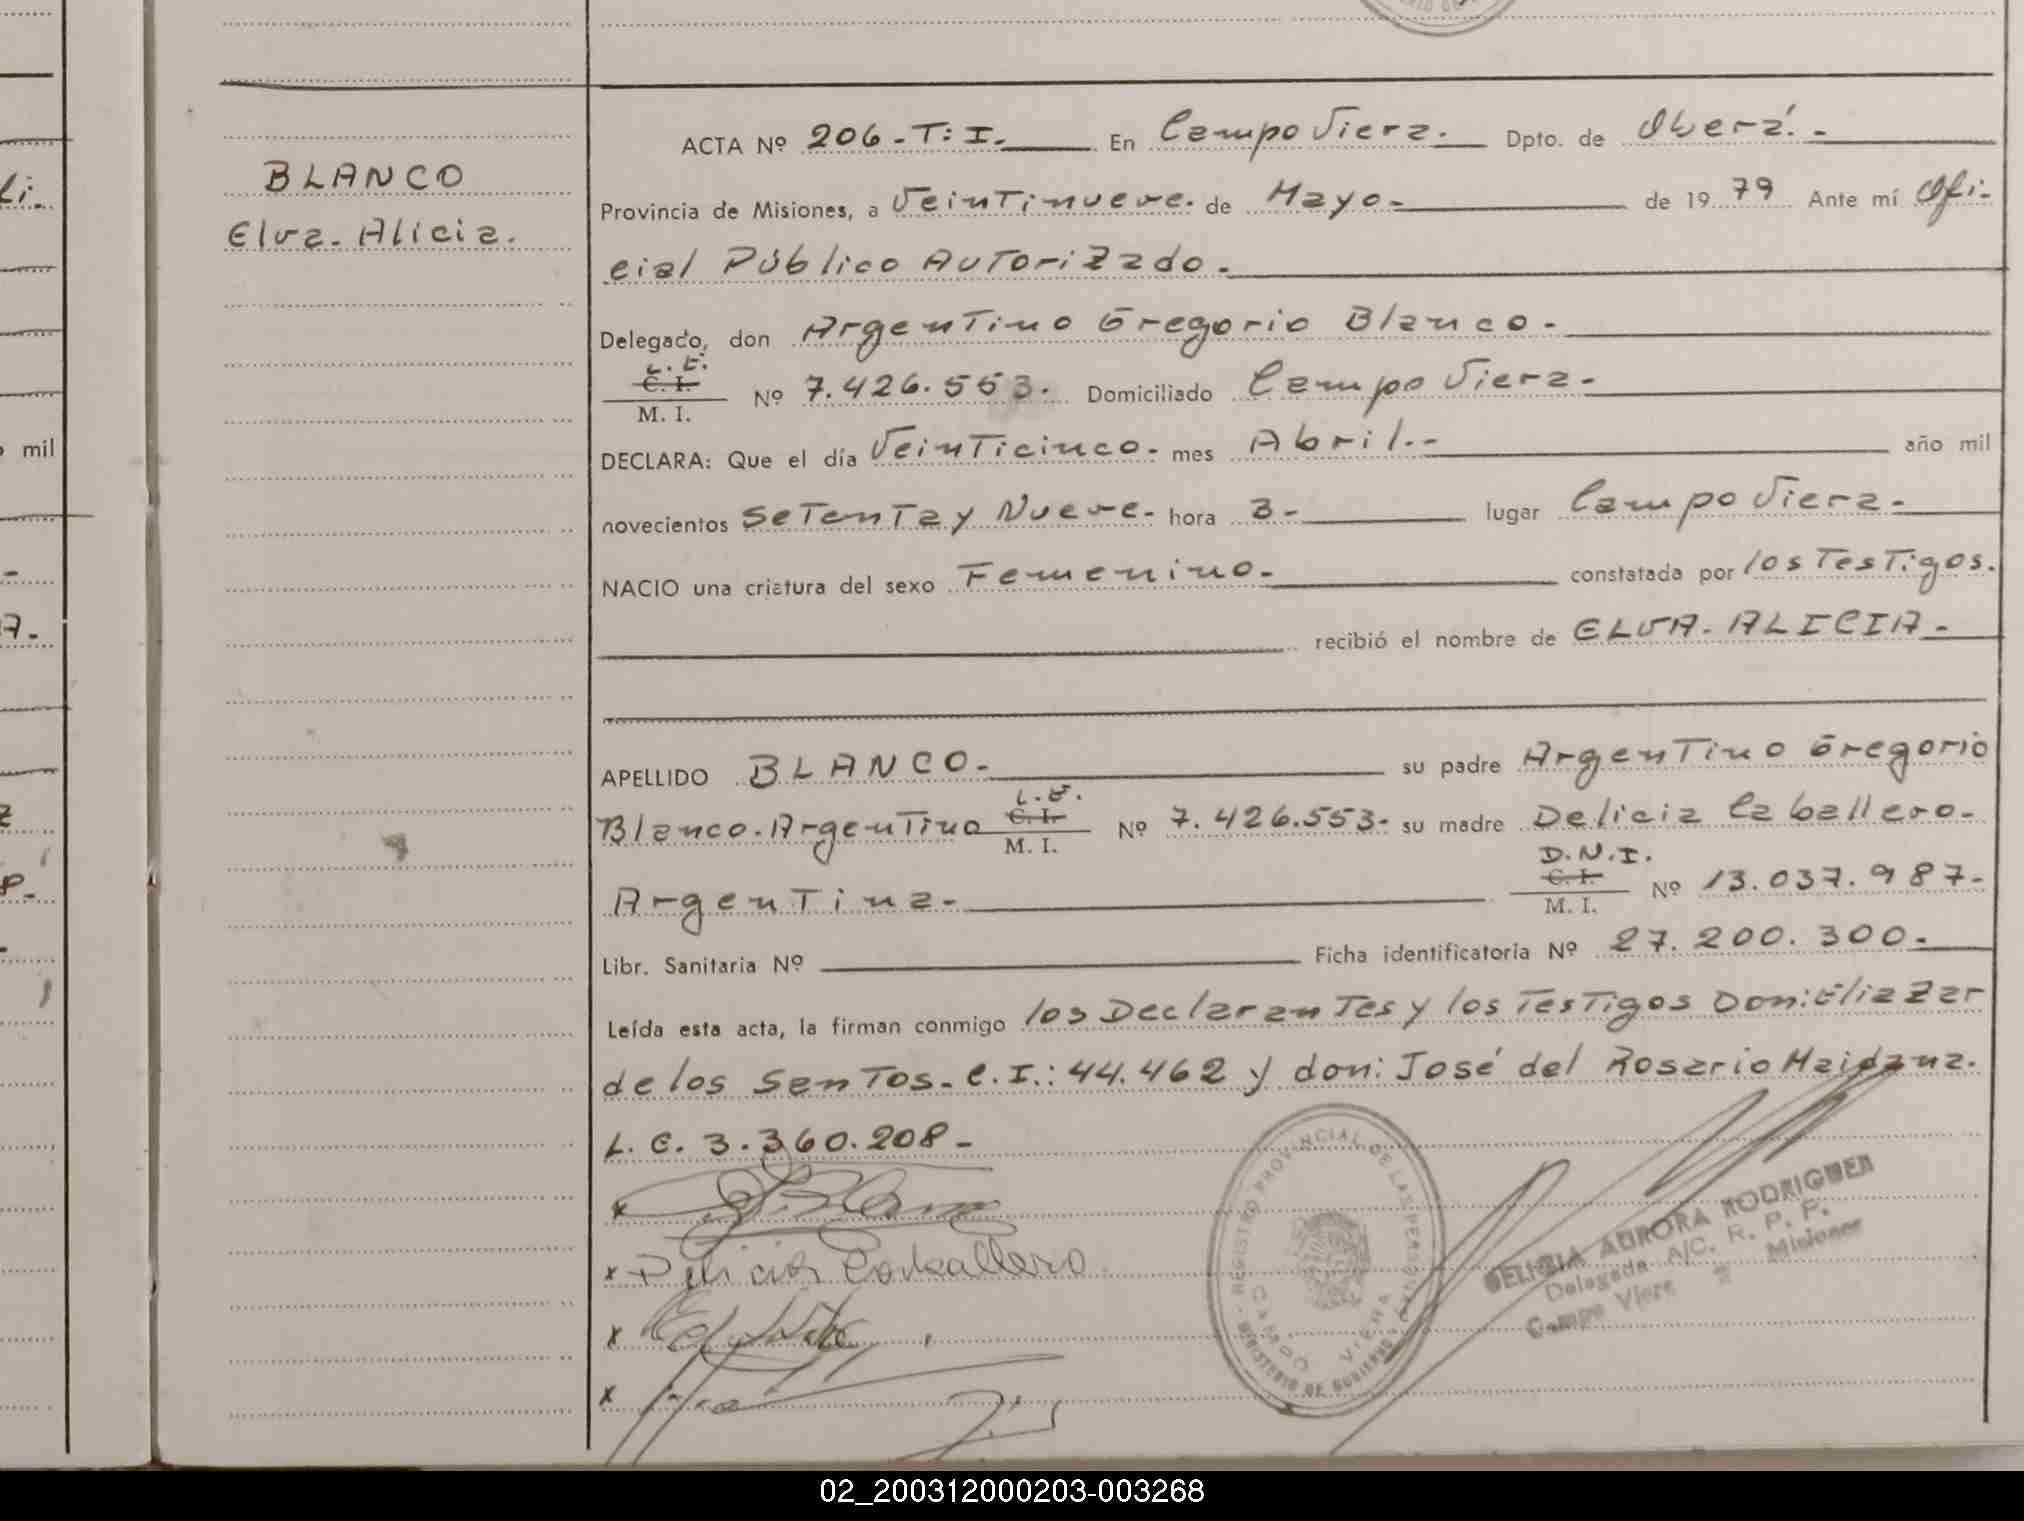 BLANCO
Elva. Alicia.
ACTA Nº 206.-T: I.- En Campo Viera. Dpto. de Oberá.-
Provincia de Misiones, a Veintinueve. de Mayo.- de 19 79 Ante mí Ofi-
cial Público Autorizado.-
Delegado, don Argentino Gregorio Blanco.-
L. E.
C. I.
M. I.
Nº 7.426.553. Domiciliado Campo Viera.-
DECLARA: Que el día Veinticinco.- mes Abril.- año mil
novecientos Setenta y Nueve.- hora 3.- lugar Campo Viera.-
NACIO una criatura del sexo Femenino.- constatada por los Testigos.
recibió el nombre de ELVA. ALICIA.-
APELLIDO BLANCO.- su padre Argentino Gregorio
Blanco. Argentino L. E. C. I. M. I. Nº 7.426.553- su madre Delicia Caballero.-
Argentina.- D.N.I. C. I. M. I. Nº 13.037.987-
Libr. Sanitaria Nº Ficha identificatoria Nº 27.200.300.-
Leída esta acta, la firman conmigo los Declarantes y los Testigos Don: Eliazzar
de los Santos. C. I.: 44.462 y don: José del Rosario Maidana.
L. E. 3.360.208-
x
x Delicia Caballero
x
x
REGISTRO PROVINCIAL DE LAS PERSONAS
MINISTERIO DE GOBIERNO
CAMPO VIERA
DELICIA AURORA RODRIGUEZ
Delegada A/C. R. P. P.
Campo Viera Misiones
mil
02_200312000203-003268